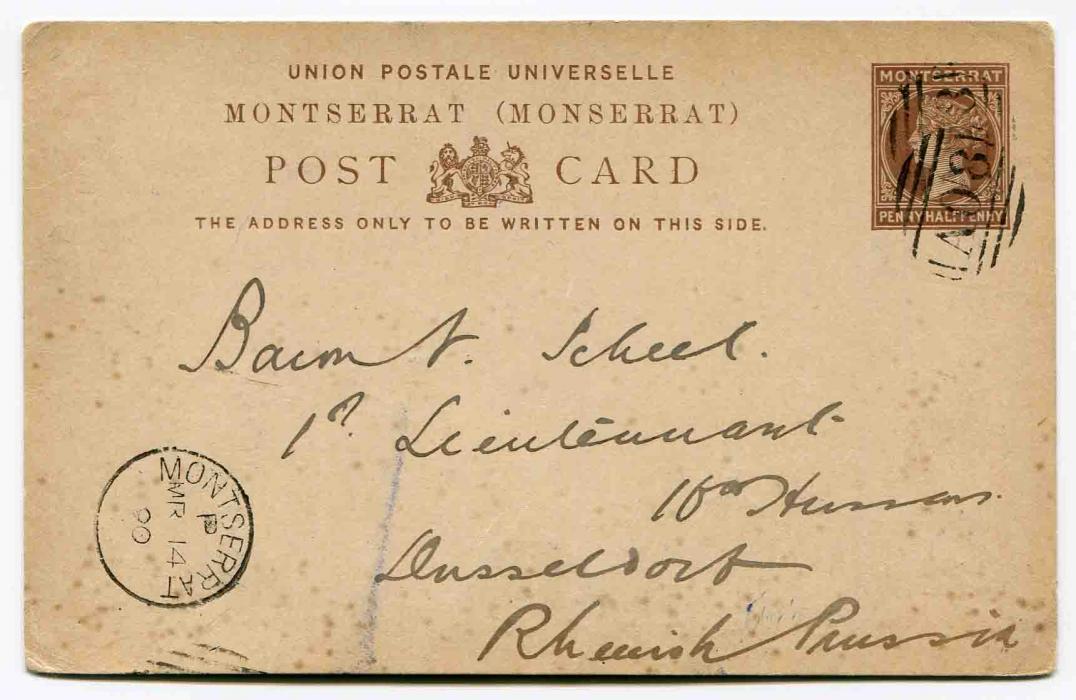 UNION POSTALE UNIVERSELLE
MONTSERRAT (MONSERRAT)
POST CARD
THE ADDRESS ONLY TO BE WRITTEN ON THIS SIDE.
MONTSERRAT
PENNY HALFPENNY
A08
Baron V. Scheel.
1st Lieutennant
Hussars.
Dusseldorf
Rhenish Prussia
MONTSERRAT
MR 14
90